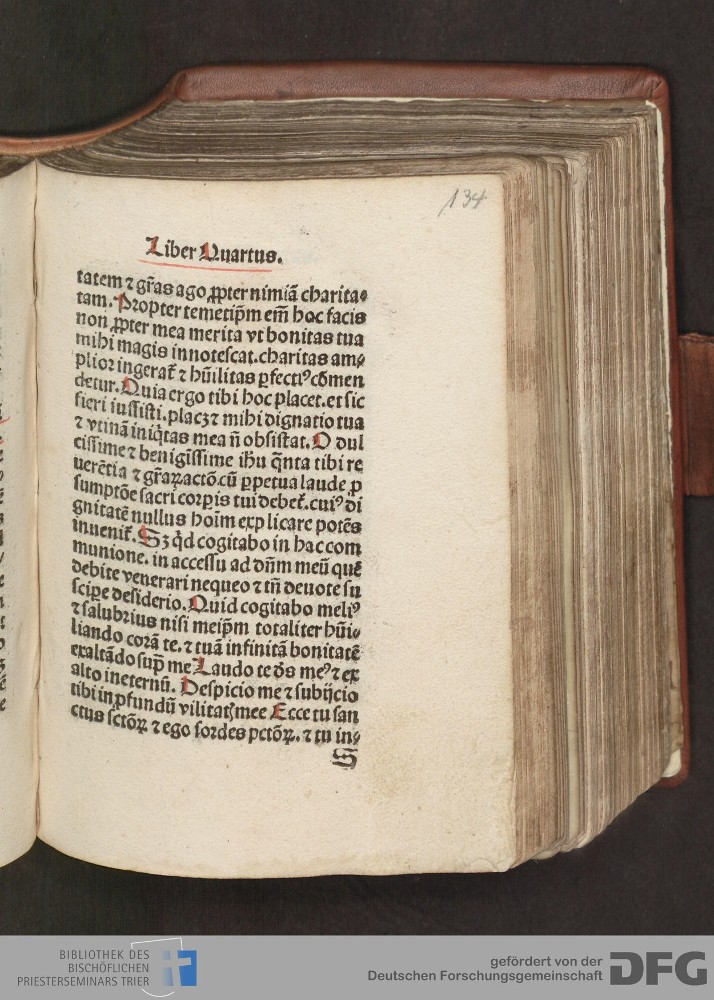 134
Liber Quartus.
tatem ⁊ gr̃as ago ꝓpter nimiã charita⸗
tam. Propter temetip̃m em̃ hoc facis
non ꝓpter mea merita vt bonitas tua
mihi magis innotescat. charitas am⸗
plior ingerat᷑ ⁊ hũilitas ꝑfectiꝰ cõmen
detur. Quia ergo tibi hoc placet. et sic
fieri iussisti. placꝫ ⁊ mihi dignatio tua
⁊ vtinã iniq̃tas mea ñ obsistat. O dul
cissime ⁊ benigĩssime ih̃u q̃nta tibi re
uerẽtia ⁊ gr̃aꝝ actõ. cũ ꝑpetua laude ꝓ
sumptõe sacri corꝑis tui debet᷑. cuiꝰ di
gnitatẽ nullus hoĩm explicare potẽs
inuenit᷑. Sꝫ q̇d cogitabo in hac com
munione. in accessu ad dñm meũ quẽ
debite venerari nequeo ⁊ tñ deuote su
scipe desiderio. Quid cogitabo meliꝰ
⁊ salubrius nisi meip̃m totaliter hũi⸗
liando corã te. ⁊ tuã infinitã bonitatẽ
exaltãdo sup̃ me Laudo te d̃s meꝰ ⁊ ex
alto ineternũ. Despicio me ⁊ subijcio
tibi in ꝓfundũ vilitatꝭ mee Ecce tu san
ctus sctõꝝ ⁊ ego sordes pctõꝝ. ⁊ tu in⸗
S
BIBLIOTHEK DES
BISCHÖFLICHEN
PRIESTERSEMINARS TRIER
gefördert von der
Deutschen Forschungsgemeinschaft
DFG